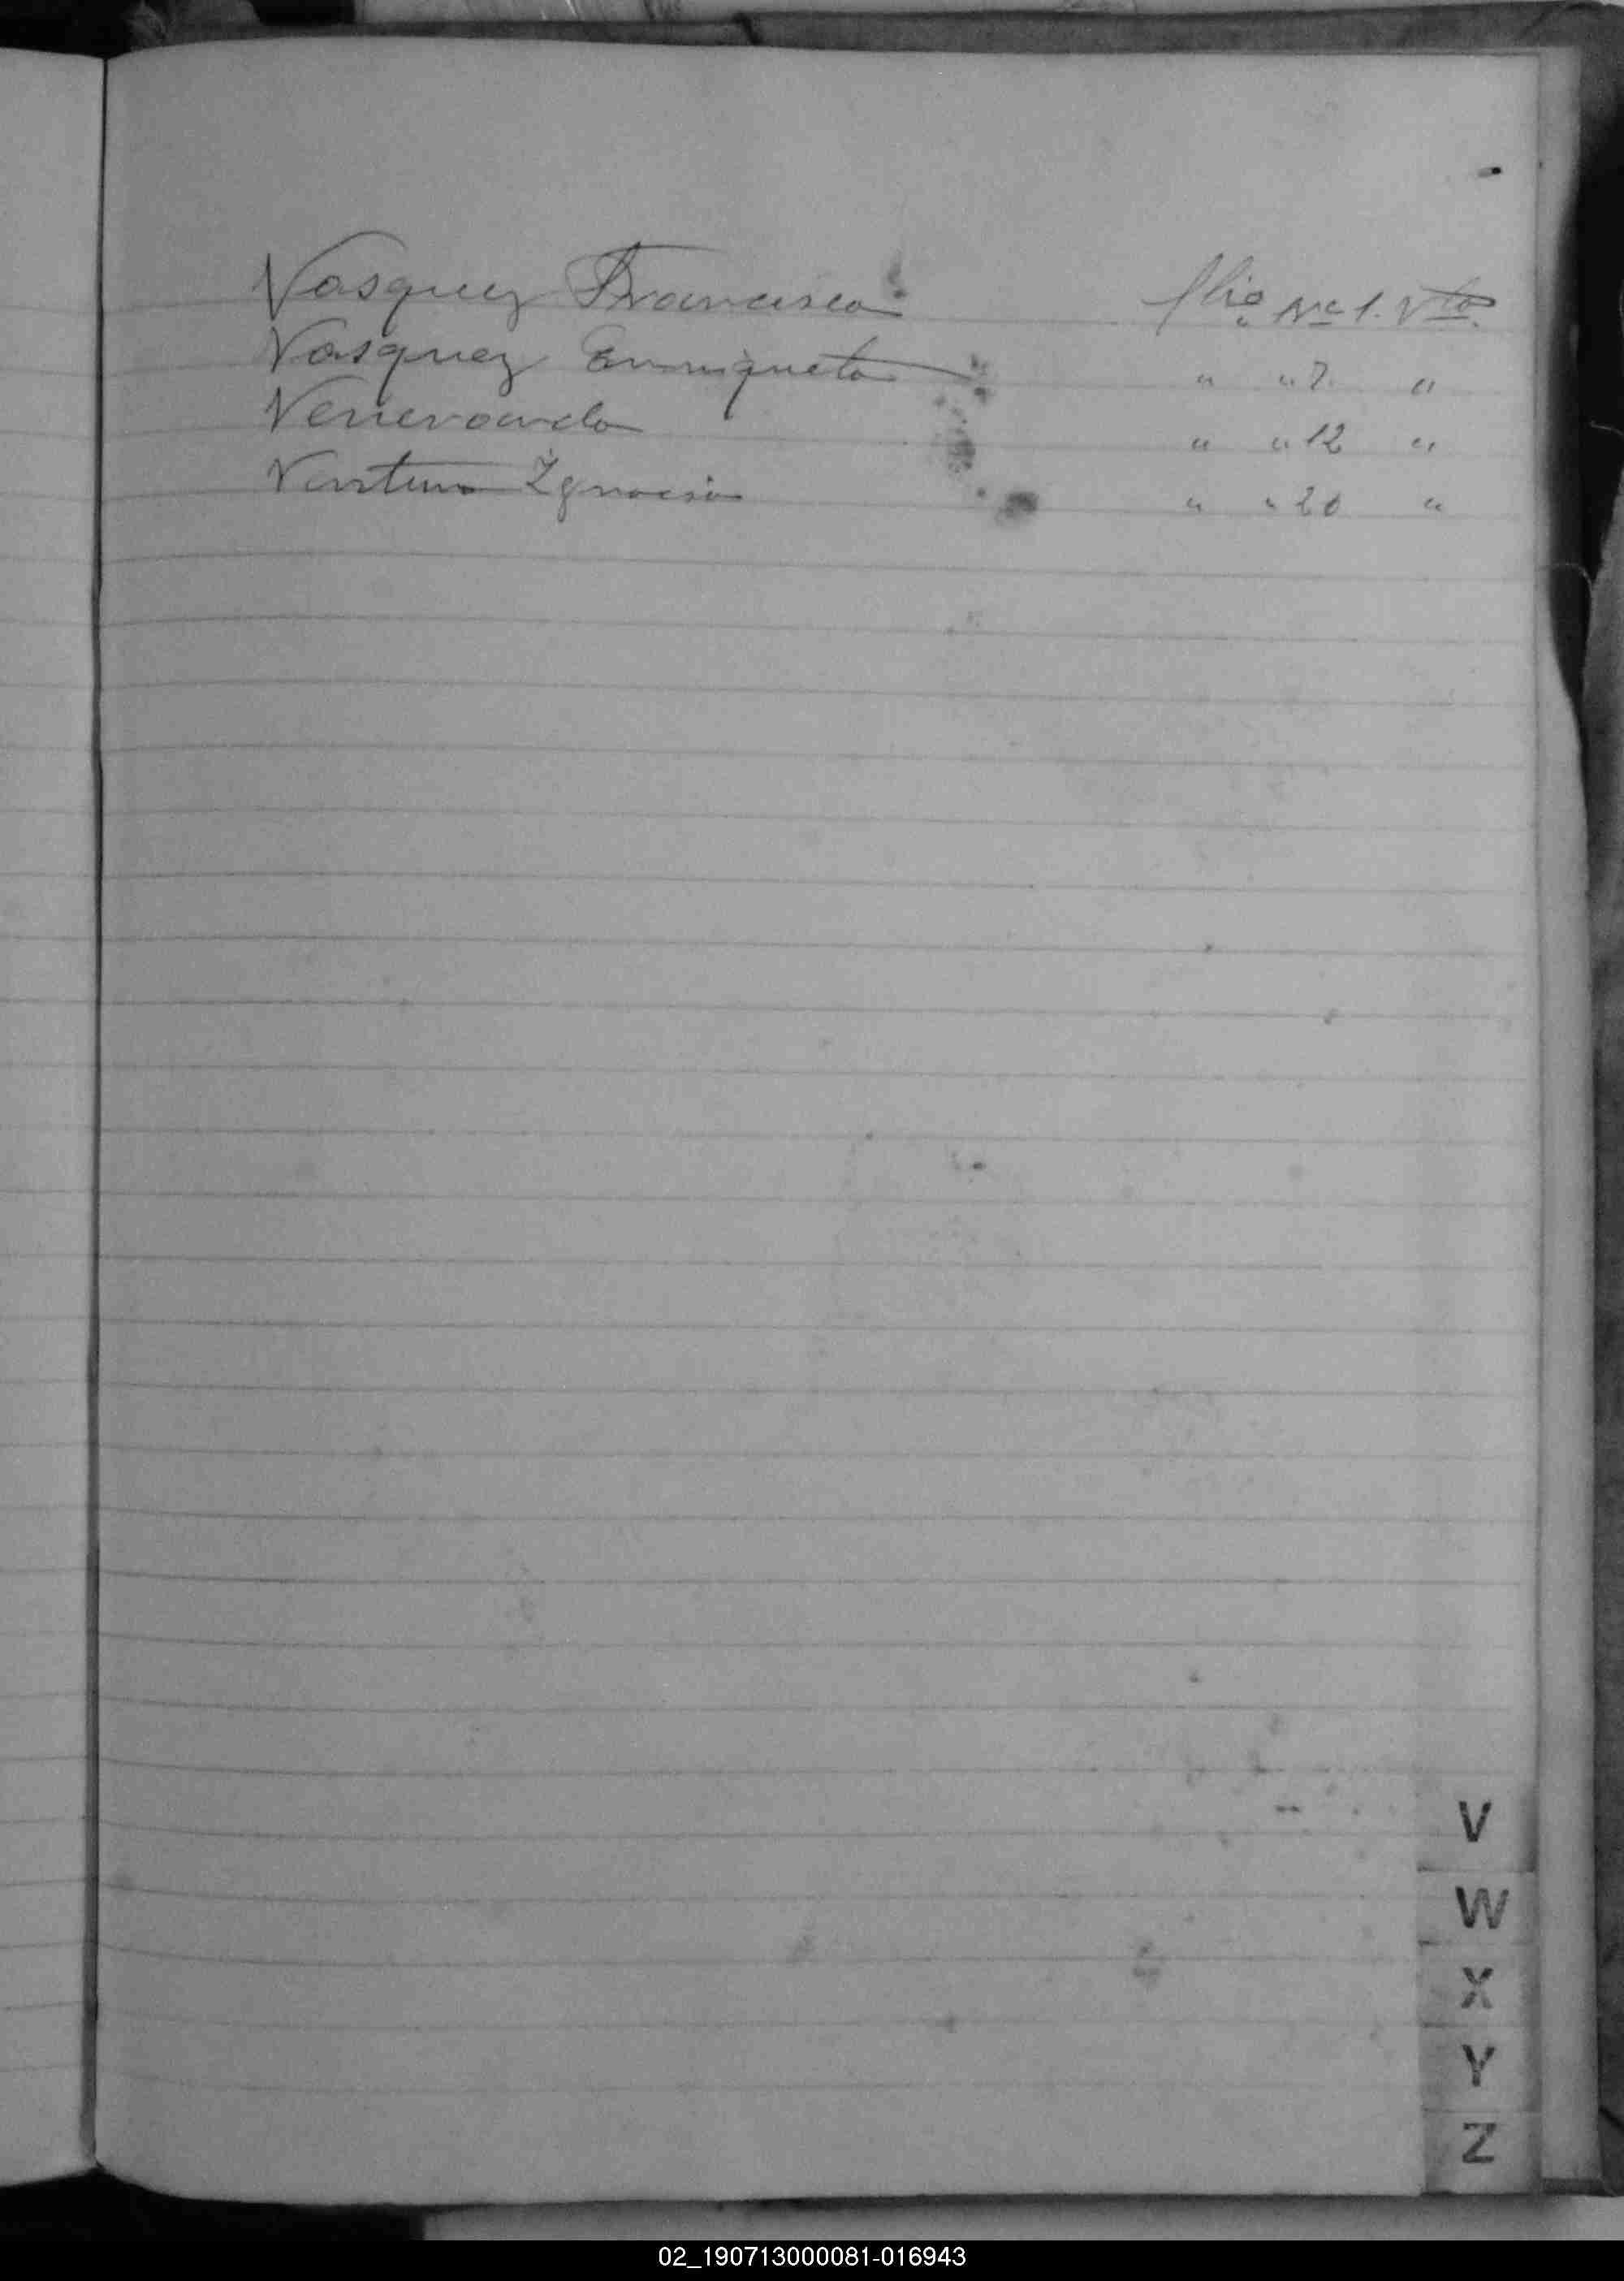 Vasquez Francisca flio Nº 1. Vto.
Vasquez Enriqueta " " 7. "
Veneranda " " 12 "
Ventura Ignacia " " 20 "
V
W
X
Y
Z
02_190713000081-016943